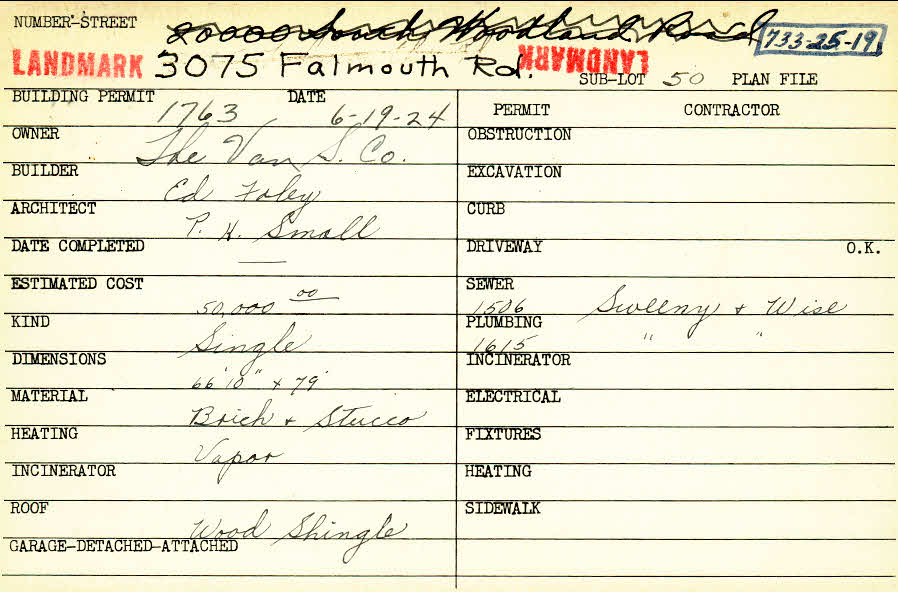 NUMBER-STREET 20000 South Woodland Road 733-25-19
LANDMARK 3075 Falmouth Rd. LANDMARK SUB-LOT 50 PLAN FILE
BUILDING PERMIT 1763 DATE 6-19-24
OWNER The Van S. Co.
BUILDER Ed Foley
ARCHITECT P. H. Small
DATE COMPLETED —
ESTIMATED COST 50,000 00
KIND Single
DIMENSIONS 66'10" x 79'
MATERIAL Brick + Stucco
HEATING Vapor
INCINERATOR
ROOF Wood Shingle
GARAGE-DETACHED-ATTACHED
PERMIT CONTRACTOR
OBSTRUCTION
EXCAVATION
CURB
DRIVEWAY O.K.
SEWER 1506 Sweeny + Wise
PLUMBING 1615 " "
INCINERATOR
ELECTRICAL
FIXTURES
HEATING
SIDEWALK